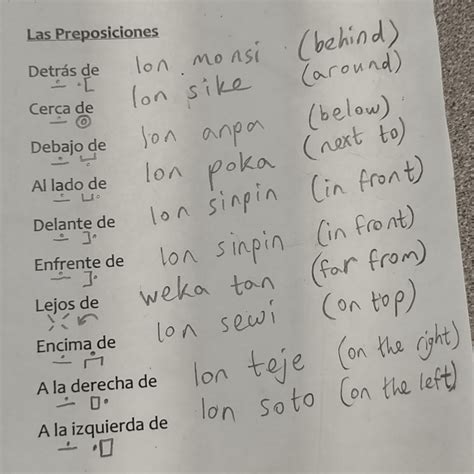 Las Preposiciones
Detrás de lon monsi (behind)
Cerca de lon sike (around)
Debajo de lon anpa (below)
Al lado de lon poka (next to)
Delante de lon sinpin (in front)
Enfrente de lon sinpin (in front)
Lejos de weka tan (far from)
Encima de lon sewi (on top)
A la derecha de lon teje (on the right)
A la izquierda de lon soto (on the left)